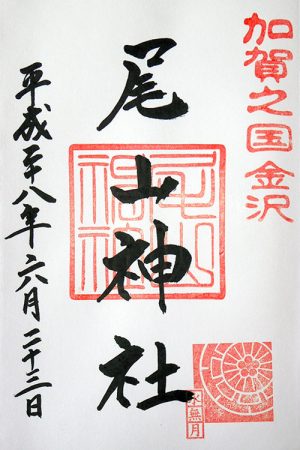 加賀之国金沢
尾山神社
尾山神社
水無月
平成二十八年六月二十三日